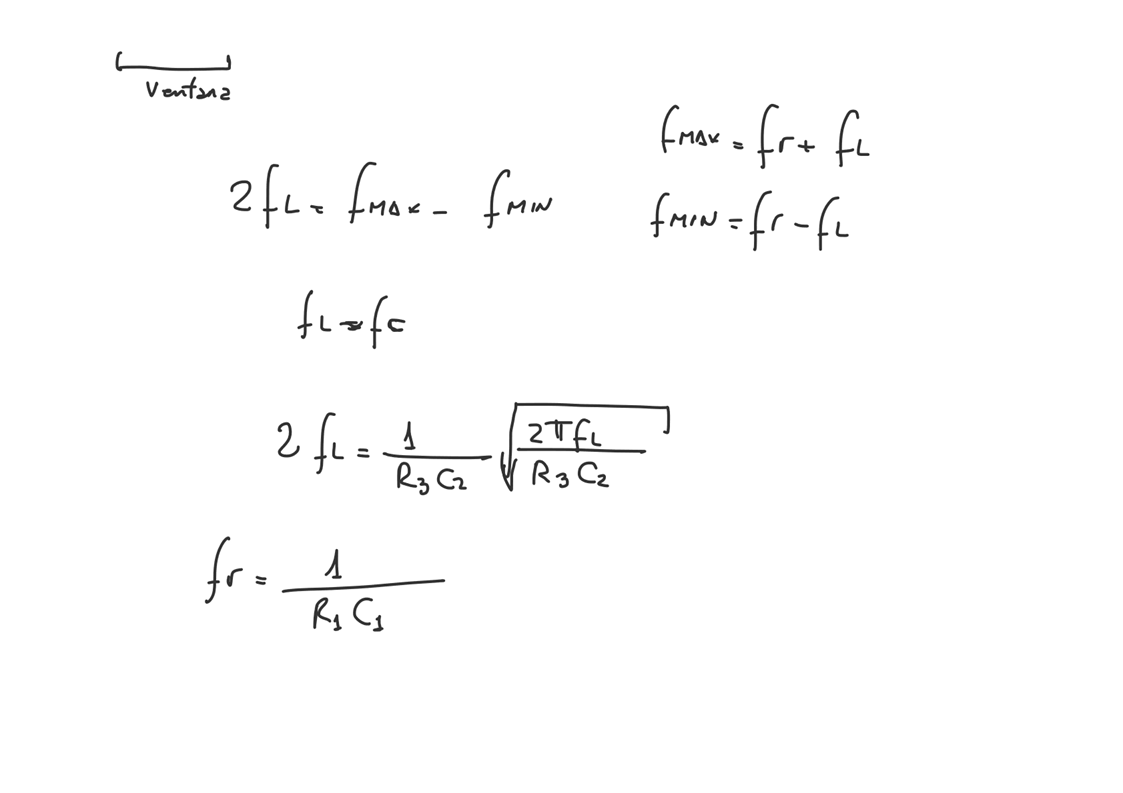 Ventana
fMAX = fr + fL
2 fL = fMAX - fMIN
fMIN = fr - fL
fL = fc
2 fL = 1 / (R3 C2) √(2πfL / (R3 C2))
fr = 1 / (R1 C1)